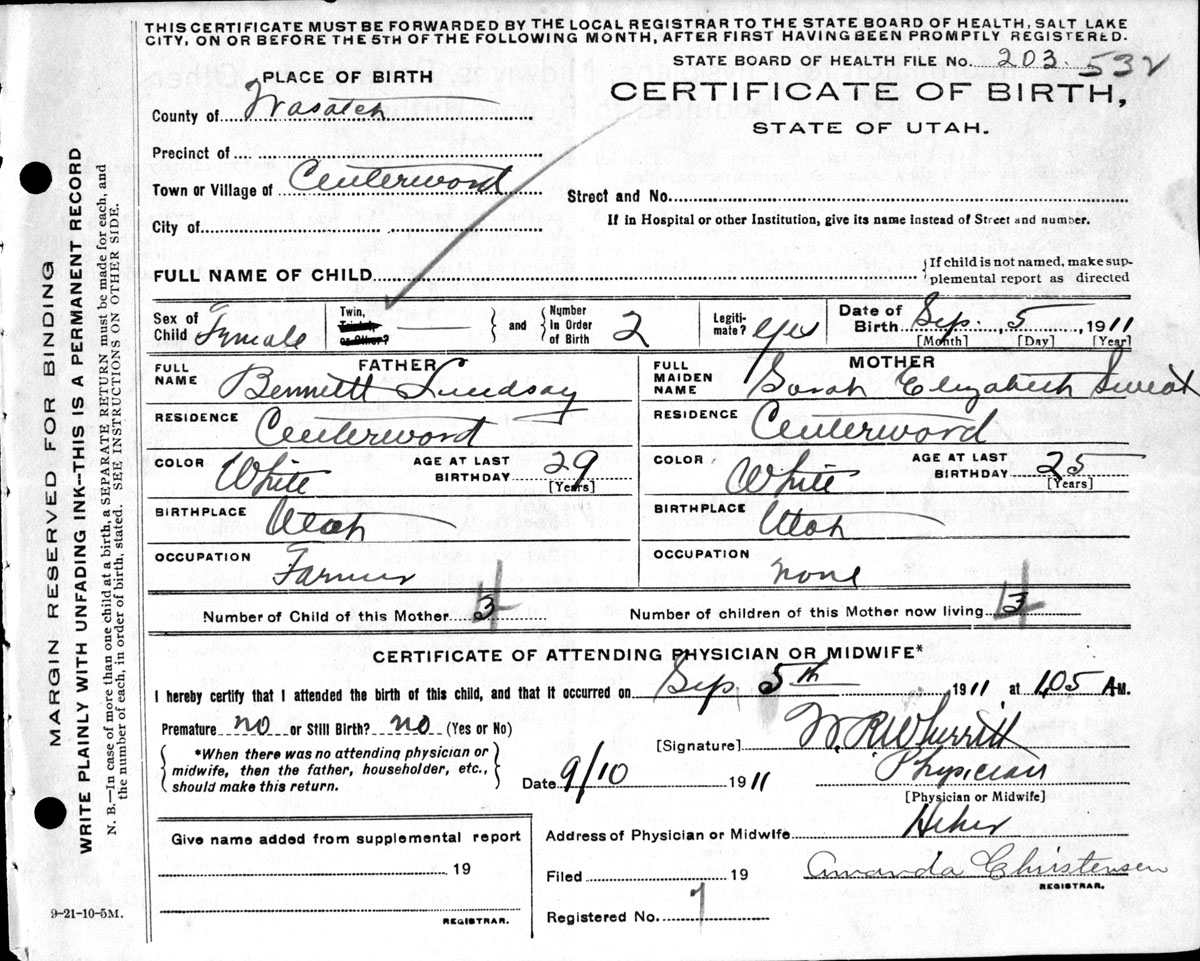 THIS CERTIFICATE MUST BE FORWARDED BY THE LOCAL REGISTRAR TO THE STATE BOARD OF HEALTH, SALT LAKE
CITY, ON OR BEFORE THE 5TH OF THE FOLLOWING MONTH, AFTER FIRST HAVING BEEN PROMPTLY REGISTERED.
STATE BOARD OF HEALTH FILE No. 203. 532
PLACE OF BIRTH
CERTIFICATE OF BIRTH,
STATE OF UTAH.
County of Wasatch
Precinct of
Town or Village of Centerword
Street and No.
City of
If in Hospital or other Institution, give its name instead of Street and number.
FULL NAME OF CHILD
{If child is not named, make sup-
plemental report as directed
Sex of Child Female
Twin, Triplet, or Other?
and
Number in Order of Birth 2
Legiti-mate? Yes
Date of Birth Sep. 5 1911
[Month] [Day] [Year]
FATHER
FULL NAME Bennett Lindsay
RESIDENCE Centerword
COLOR White
AGE AT LAST BIRTHDAY 29
[Years]
BIRTHPLACE Utah
OCCUPATION Farmer
MOTHER
FULL MAIDEN NAME Sarah Elizabeth Sweat
RESIDENCE Centerword
COLOR White
AGE AT LAST BIRTHDAY 25
[Years]
BIRTHPLACE Utah
OCCUPATION None
Number of Child of this Mother 3 4
Number of children of this Mother now living 3 4
CERTIFICATE OF ATTENDING PHYSICIAN OR MIDWIFE*
I hereby certify that I attended the birth of this child, and that it occurred on Sep 5th 1911 at 1,05 A M.
Premature no or Still Birth? no (Yes or No)
*When there was no attending physician or
midwife, then the father, householder, etc.,
should make this return.
[Signature] W. R. Wherritt
Date 9/10 1911
Physician
[Physician or Midwife]
Address of Physician or Midwife Heber
Give name added from supplemental report
19
REGISTRAR.
Filed 19
Amanda Christensen
REGISTRAR.
Registered No. 7
9-21-10-5M.
MARGIN RESERVED FOR BINDING
WRITE PLAINLY WITH UNFADING INK--THIS IS A PERMANENT RECORD
N. B.—In case of more than one child at a birth, a SEPARATE RETURN must be made for each, and
the number of each, in order of birth, stated. SEE INSTRUCTIONS ON OTHER SIDE.